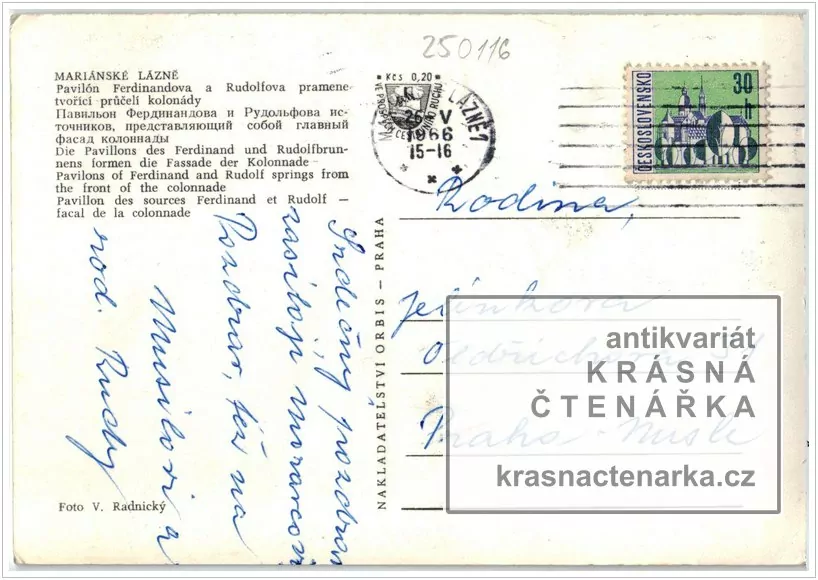 250116
MARIÁNSKÉ LÁZNĚ
Pavilón Ferdinandova a Rudolfova pramene
tvořící průčelí kolonády
Павильон Фердинандова и Рудольфова ис-
точников, представляющий собой главный
фасад колоннады
Die Pavillons des Ferdinand und Rudolfbrun-
nens formen die Fassade der Kolonnade
Pavilons of Ferdinand and Rudolf springs from
the front of the colonnade
Pavillon des sources Ferdinand et Rudolf —
facal de la colonnade
Foto V. Radnický
Srdečný pozdrav
zasílají
Pozdrav, též na
Musilovi a
rod. Kuchy
NAKLADATELSTVÍ ORBIS — PRAHA
Kčs 0,20
LÁZNĚ 1
26 V
1966
15-16
ČESKOSLOVENSKO
30 h
Rodina,
Jelínkova
Oldřichova
Praha - Nusle
antikvariát
KRÁSNÁ
ČTENÁŘKA
krasnactenarka.cz